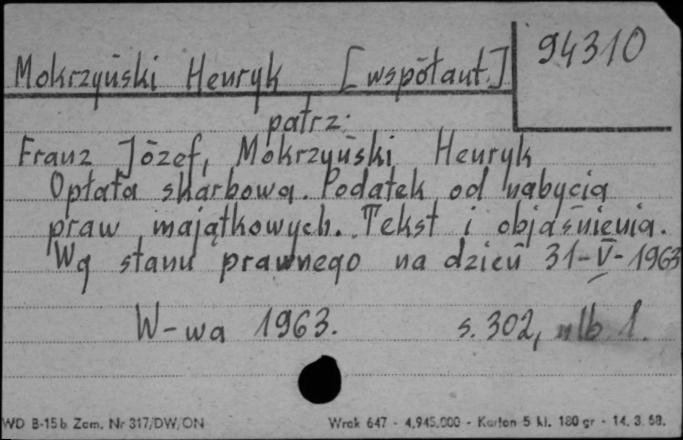 94310
Mokrzyński Henryk [współaut.]
patrz:
Franz Józef, Mokrzyński Henryk
Opłata skarbowa. Podatek od nabycia
praw majątkowych. Tekst i objaśnienia.
Wg stanu prawnego na dzień 31-V-1963
W-wa 1963. s. 302, nlb 1.
WD B-15b Zam. Nr 317/DW/ON Wrok 647 - 4.945.000 - Karton 5 kl. 180 gr - 14. 3. 68.